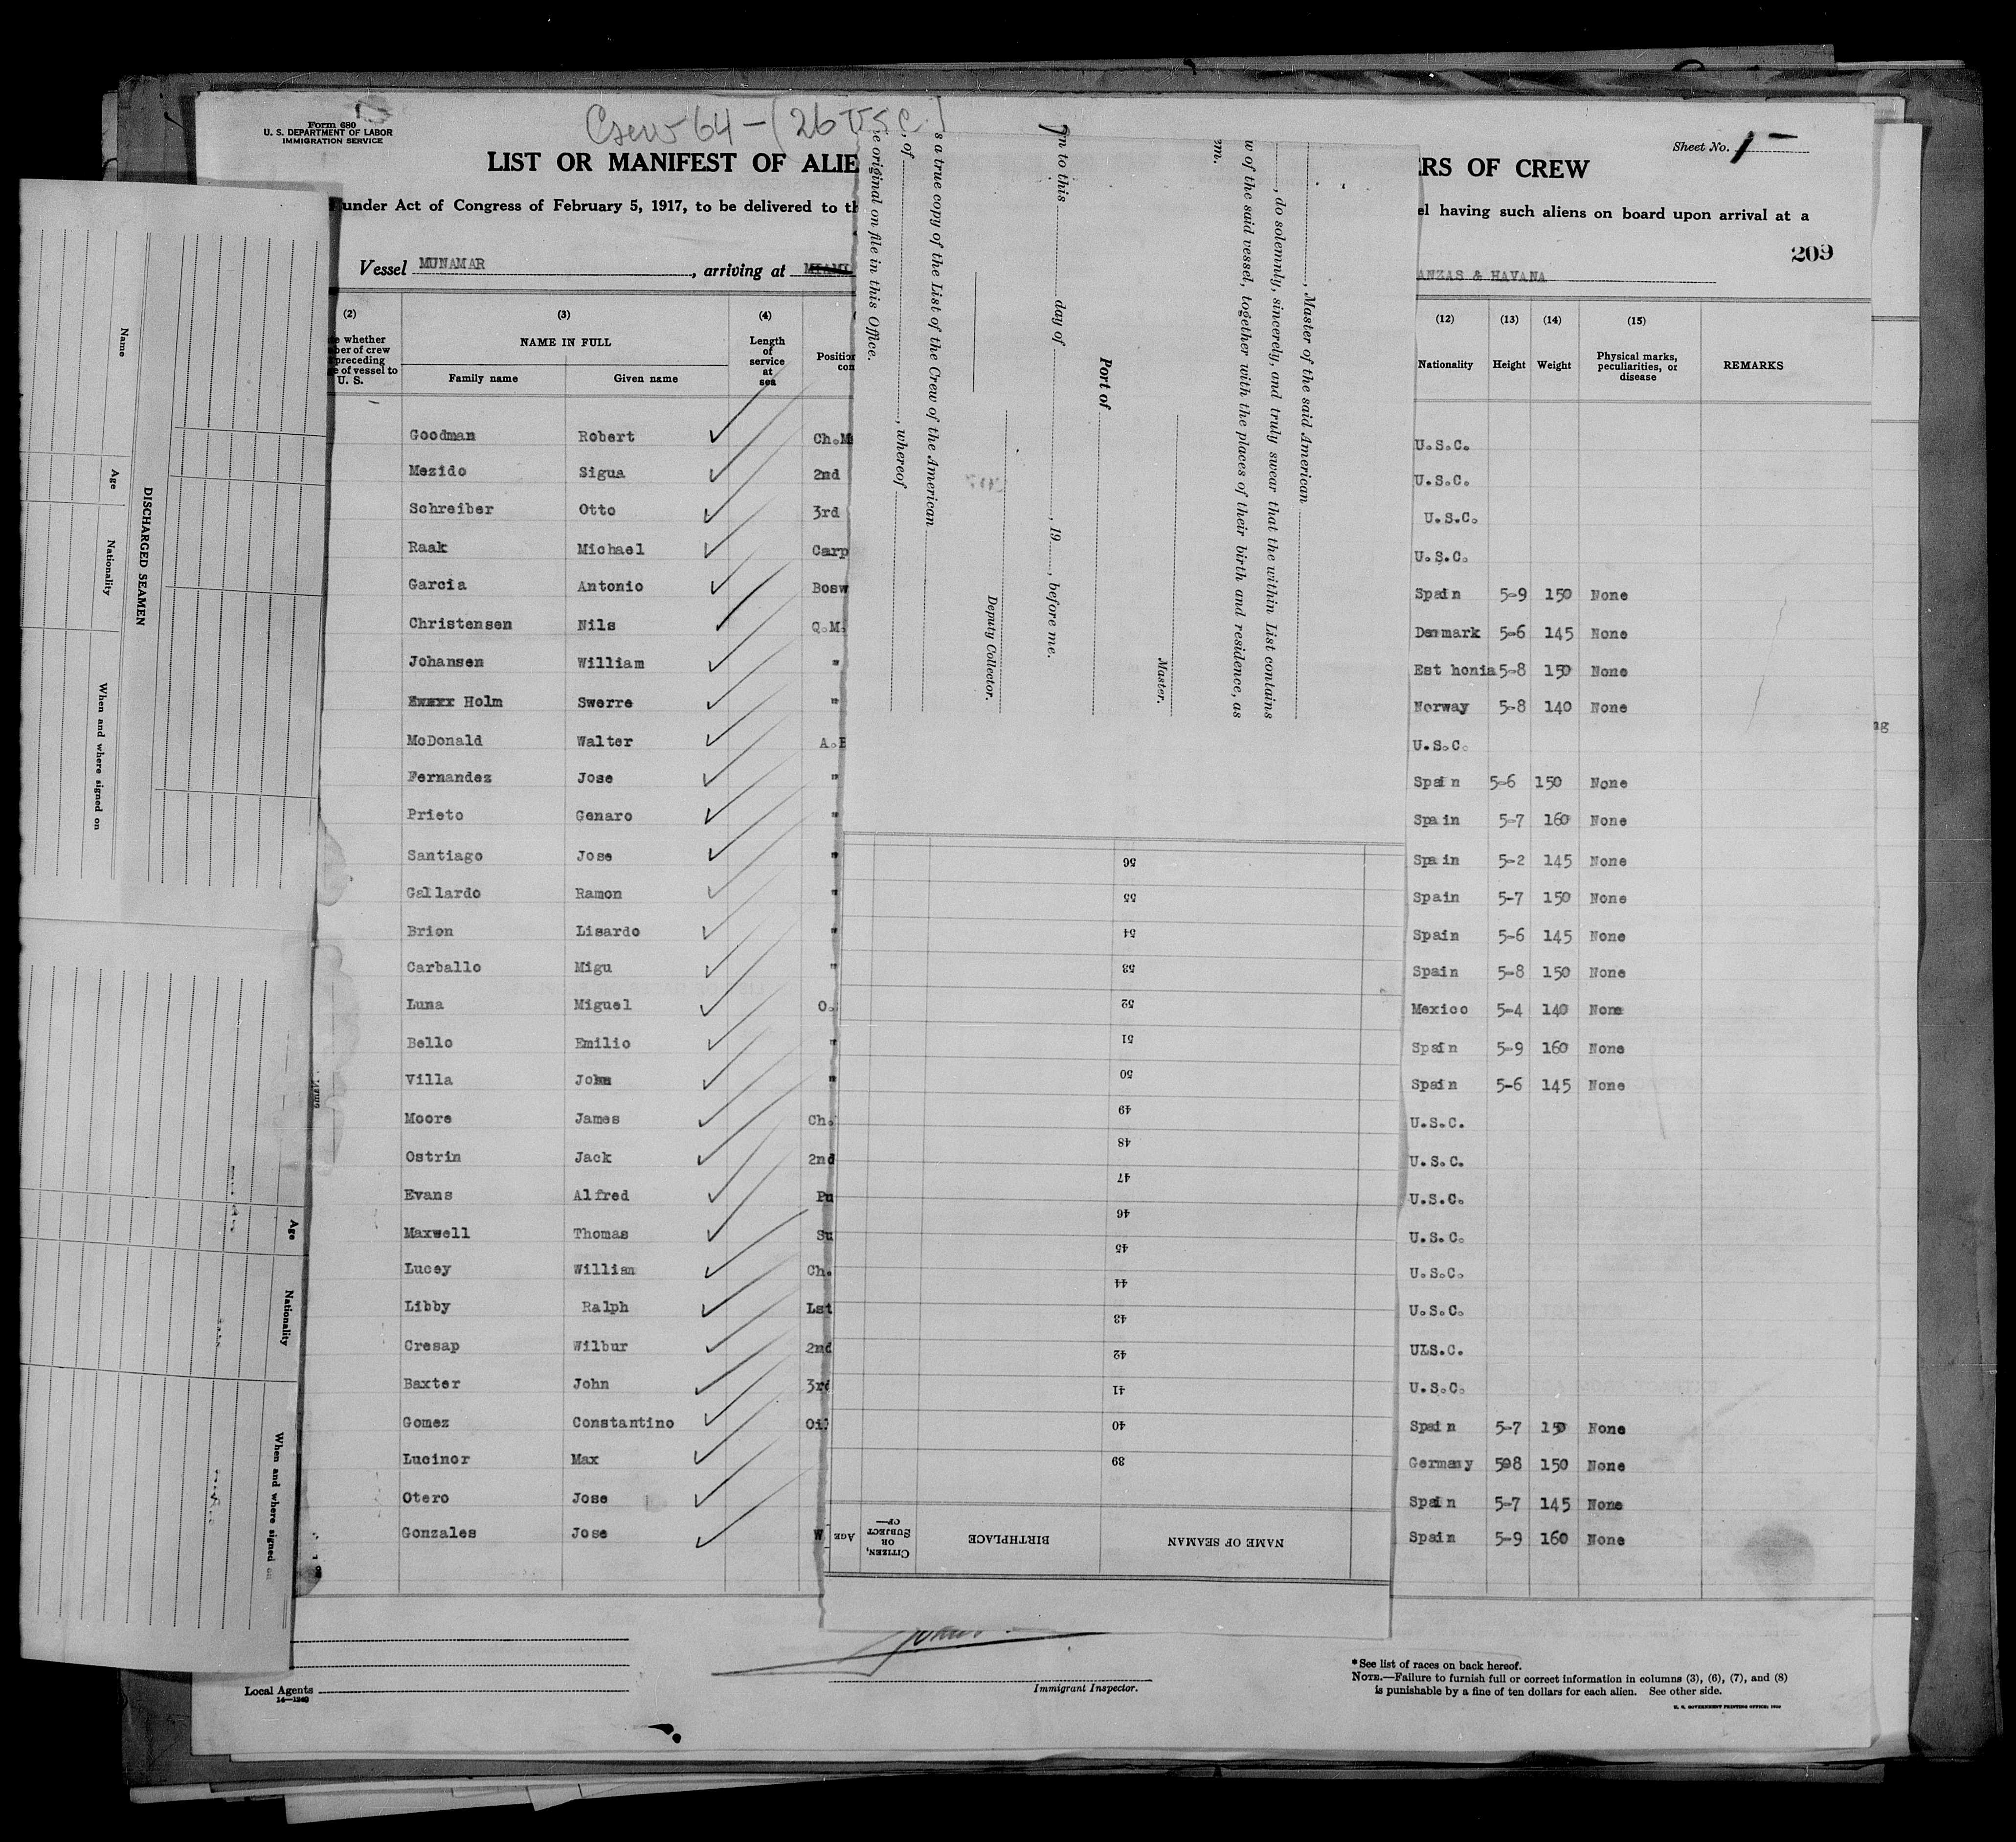 Form 680
U. S. DEPARTMENT OF LABOR
IMMIGRATION SERVICE
Crew 64-(26 USC)
Sheet No. 1
LIST OR MANIFEST OF ALIE
RS OF CREW
under Act of Congress of February 5, 1917, to be delivered to th
el having such aliens on board upon arrival at a
209
Vessel MUNAMAR, arriving at MIAMI
ANZAS & HAVANA
(2) (3) (4) (12) (13) (14) (15)
e whether
ber of crew
preceding
e of vessel to
U. S.
NAME IN FULL
Family name Given name
Length
of
service
at
sea
Position
con
Nationality Height Weight
Physical marks,
peculiarities, or
disease
REMARKS
Goodman Robert Ch.M U.S.C.
Mezido Sigua 2nd U.S.C.
Schreiber Otto 3rd U.S.C.
Raak Michael Carp U.S.C.
Garcia Antonio Bosw Spain 5-9 150 None
Christensen Nils Q.M. Denmark 5-6 145 None
Johansen William " Est honia 5-8 150 None
Holm Swerre " Norway 5-8 140 None
McDonald Walter A.B U.S.C.
Fernandez Jose " Spain 5-6 150 None
Prieto Genaro " Spain 5-7 160 None
Santiago Jose " Spain 5-2 145 None
Gallardo Ramon " Spain 5-7 150 None
Brion Lisardo " Spain 5-6 145 None
Carballo Migu " Spain 5-8 150 None
Luna Miguel O. Mexico 5-4 140 None
Bello Emilio " Spain 5-9 160 None
Villa John " Spain 5-6 145 None
Moore James Ch. U.S.C.
Ostrin Jack 2nd U.S.C.
Evans Alfred Pu U.S.C.
Maxwell Thomas Su U.S.C.
Lucey William Ch. U.S.C.
Libby Ralph 1st U.S.C.
Cresap Wilbur 2nd ULS.C.
Baxter John 3rd U.S.C.
Gomez Constantino Oil Spain 5-7 150 None
Lucinor Max Germany 508 150 None
Otero Jose Spain 5-7 145 None
Gonzales Jose W Spain 5-9 160 None
Local Agents
14—1240
Immigrant Inspector.
*See list of races on back hereof.
NOTE.—Failure to furnish full or correct information in columns (3), (6), (7), and (8)
is punishable by a fine of ten dollars for each alien. See other side.
U. S. GOVERNMENT PRINTING OFFICE
DISCHARGED SEAMEN
Name Age Nationality When and where signed on
Age Nationality When and where signed on
, Master of the said American
, do solemnly, sincerely, and truly swear that the within List contains
w of the said vessel, together with the places of their birth and residence, as
em.
Master.
Port of
n to this day of , 19 , before me.
Deputy Collector.
s a true copy of the List of the Crew of the American
, of , whereof
e original on file in this Office.
NAME OF SEAMAN
BIRTHPLACE
AGE
CITIZEN,
OR
SUBJECT
OF—
39
40
41
42
43
44
45
46
47
48
49
50
51
52
53
54
55
56
ng